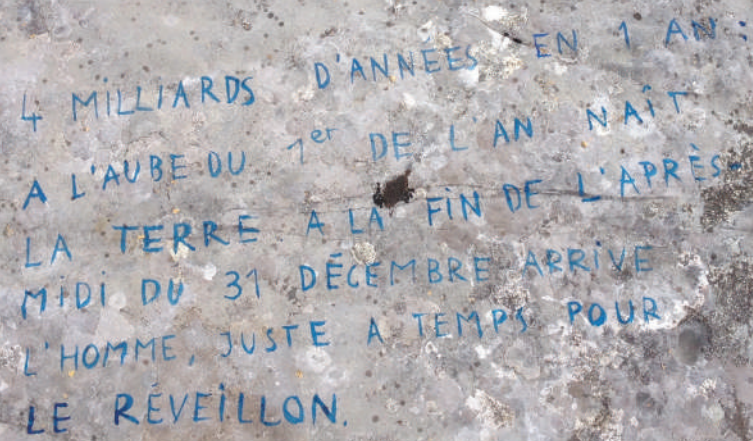 4 MILLIARDS D'ANNÉES EN 1 AN :
A L'AUBE DU 1er DE L'AN NAÎT
LA TERRE A LA FIN DE L'APRÈS-
MIDI DU 31 DÉCEMBRE ARRIVE
L'HOMME, JUSTE A TEMPS POUR
LE RÉVEILLON.